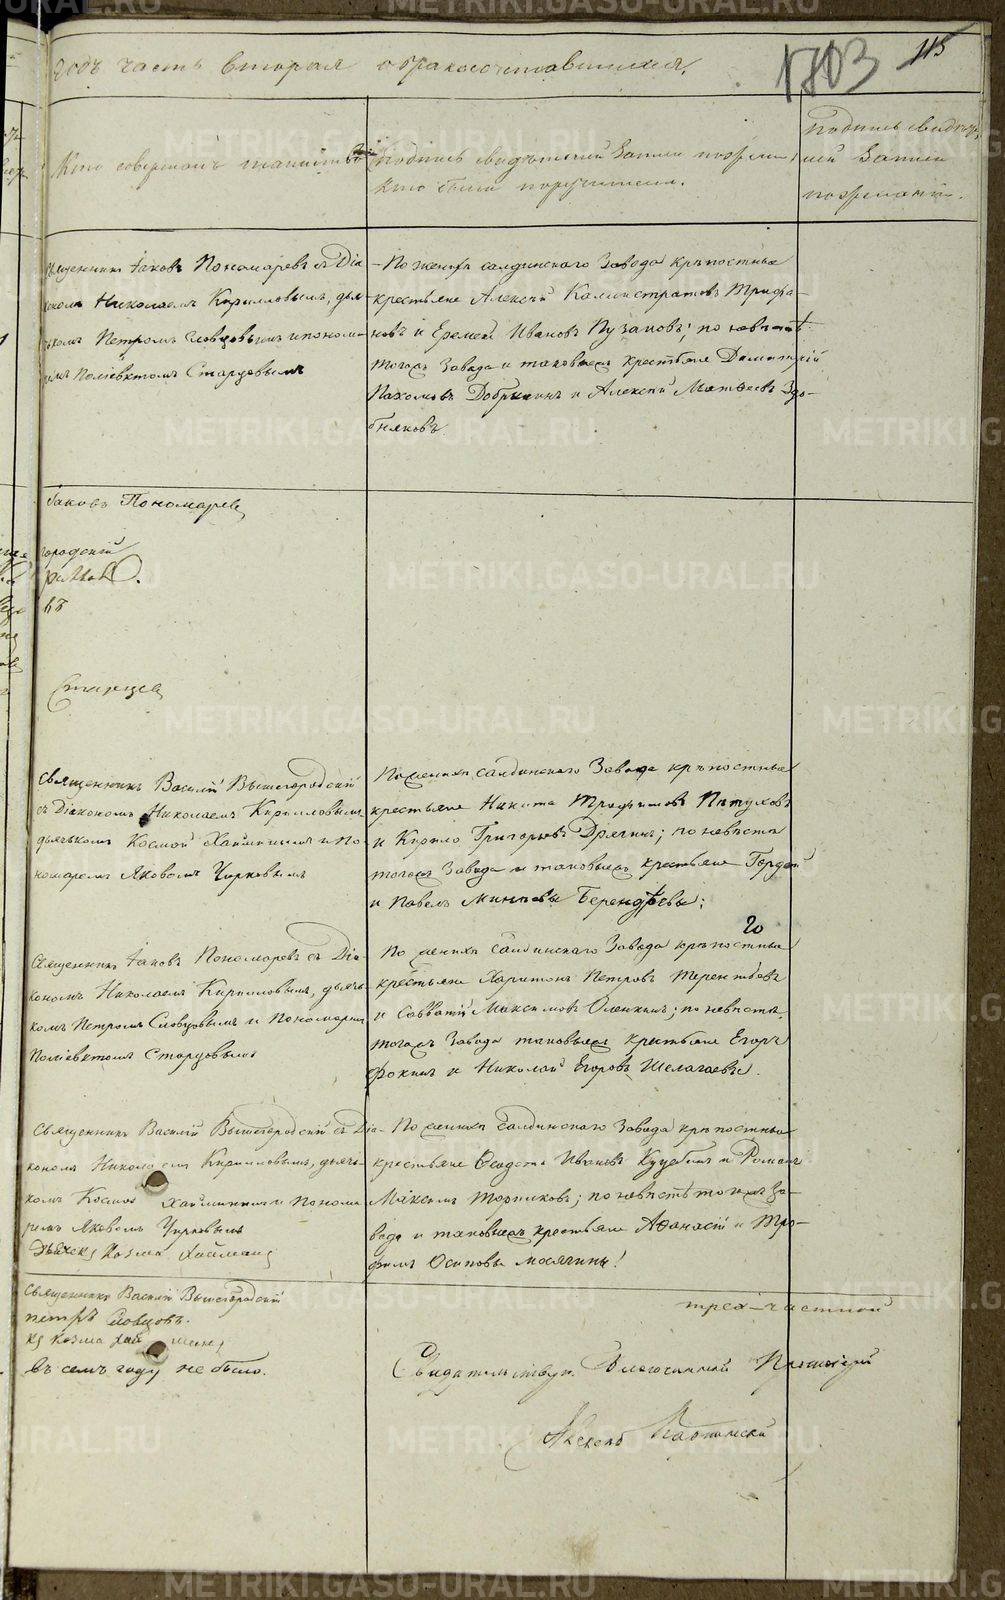 годъ часть вторая о бракосочетавшихся.
1803
115
Кто совершалъ таинство
подпись свидѣтелей записи по желанію
Кто были поручители.
подпись свидѣте-
лей записи
по желанію.
Священникъ Іаковъ Пономаревъ съ Діа-
кономъ Николаемъ Кирилловымъ, дья-
комъ Петромъ Словцовымъ и понома-
Поліевктомъ Старцовымъ
По женихѣ салдинскаго завода крѣпостные
крестьяне Алексѣй Каллистратовъ Трифа-
новъ и Еремей Ивановъ Пузановъ; по невѣстѣ
тогожъ завода и таковыежъ крестьяне Димитрій
Пахомовъ Добрынинъ и Алексѣй Матвеевъ Здо-
бняковъ
Іаковъ Пономарев
городскій
въ
Старцев
Священникъ Василій Вышегородскій
съ Діакономъ Николаемъ Кирилловымъ
дьячькомъ Космой Хайминымъ и по-
номаремъ Яковомъ Чирковымъ
По женихѣ салдинскаго завода крѣпостные
крестьяне Никита Трофимовъ Пятуховъ
и Кирило Григорьевъ Дрягинъ; по невѣстѣ
тогожъ завода и таковыежъ крестьяне Гордей
и Павелъ Минѣевы Берендѣевы;
го
Священникъ Іаковъ Пономаревъ съ Діа-
кономъ Николаемъ Кирилловымъ, дьячь-
комъ Петромъ Словцовымъ и Пономаремъ
Поліевктомъ Старцовымъ
По женихѣ салдинскаго завода крѣпостные
крестьяне Харитонъ Петровъ Терентьевъ
и Савватій Максимовъ Оленкинъ; по невѣстѣ
тогожъ завода таковыежъ крестьяне Егоръ
Фокинъ и Николай Егоровъ Шелагаевы.
Священникъ Василій Вышегородскій съ Діа-
кономъ Николаемъ Кирилловымъ, дьячь-
комъ Космою Хайминымъ и Понома-
ремъ Яковомъ Чирковымъ
Дьячекъ Козма Хаймин
По женихѣ салдинскаго завода крѣпостные
крестьяне Ѳеодотъ Ивановъ и Романъ
Максимъ; по невѣстѣ тогожъ за-
вода и таковыежъ крестьяне Аѳанасій и Тро-
фимъ Осиповы
Священникъ Василій Вышегородскій
петръ Словцовъ.
Козма Хай мин
въ семъ году не было.
трех-частной
Свидѣтельствую. Благочинный Протоіерей